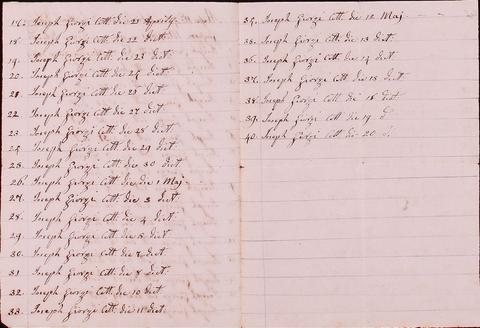 17. Joseph Giorgi Cott. die 21 Aprilis
18. Joseph Giorgi Cott. die 22 dict.
19. Joseph Giorgi Cott. die 23 dict.
20. Joseph Giorgi Cott. die 24 dict.
21. Joseph Giorgi Cott. die 25 dict.
22. Joseph Giorgi Cott. die 27 dict.
23. Joseph Giorgi Cott. die 28 dict.
24. Joseph Giorgi Cott. die 29 dict.
25. Joseph Giorgi Cott. die 30 dict.
26. Joseph Giorgi Cott. die die 1 Maj
27. Joseph Giorgi Cott. die 3 dict.
28. Joseph Giorgi Cott. die 4 dict.
29. Joseph Giorgi Cott. die 5 dict.
30. Joseph Giorgi Cott. die 7 dict.
31. Joseph Giorgi Cott. die 8 dict.
32. Joseph Giorgi Cott. die 10 dict.
33. Joseph Giorgi Cott. die 11 dict.
34. Joseph Giorgi Cott. die 12 Maj
35. Joseph Giorgi Cott. die 13 dict.
36. Joseph Giorgi Cott. die 14 dict.
37. Joseph Giorgi Cott. die 15 dict.
38. Joseph Giorgi Cott. die 18 dict.
39. Joseph Giorgi Cott. die 19 d.
40. Joseph Giorgi Cott. die 20 d.